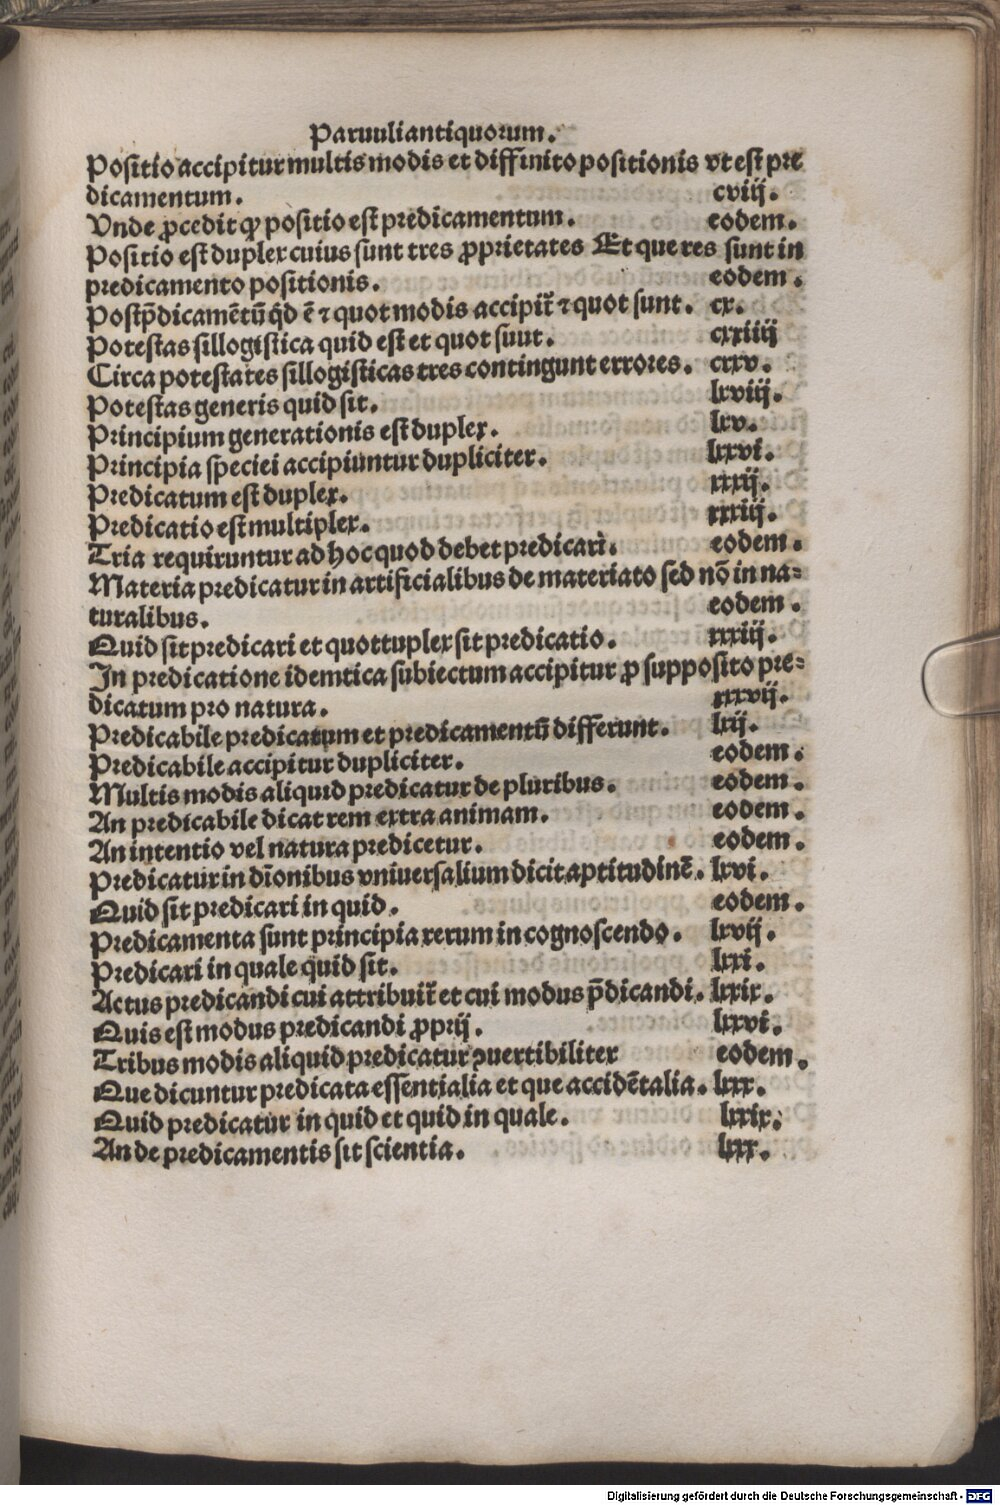 Paruuli antiquorum.
Positio accipitur multis modis et diffinito positionis vt est pre
dicamentum. cviij.
Vnde ꝓcedit ꝙ positio est predicamentum. eodem.
Positio est duplex cuius sunt tres ꝓprietates Et que res sunt in
predicamento positionis. eodem.
Postp̄dicamētū qͥd ē ⁊ quot modis accipit᷑ ⁊ quot sunt. cx.
Potestas sillogistica quid est et quot suut. cxxiiij
Circa potestates sillogisticas tres contingunt errores. cxxv.
Potestas generis quid sit. lxviij.
Principium generationis est duplex. lxv.
Principia speciei accipiuntur dupliciter. lxxvi.
Predicatum est duplex. xxxij.
Predicatio est multiplex. xxxiij.
Tria requiruntur ad hoc quod debet predicari. eodem.
Materia predicatur in artificialibus de materiato sed nō in na⸗
turalibus. eodem.
Quid sit predicari et quottuplex sit predicatio. xxxiij.
In predicatione idemtica subiectum accipitur ꝓ supposito pre⸗
dicatum pro natura. xxxvij.
Predicabile predicatum et predicamentū differunt. lxij.
Predicabile accipitur dupliciter. eodem.
Multis modis aliquid predicatur de pluribus. eodem.
An predicabile dicat rem extra animam. eodem.
An intentio vel natura predicetur. eodem.
Predicatur in dīonibus vniuersalium dicit aptitudinē. lxvi.
Quid sit predicari in quid. eodem.
Predicamenta sunt principia rerum in cognoscendo. lxvij.
Predicari in quale quid sit. lxxi.
Actus predicandi cui attribuit᷑ et cui modus p̄dicandi. lxxix.
Quis est modus predicandi ꝓprij. lxxvi.
Tribus modis aliquid predicatur ꝯuertibiliter eodem.
Que dicuntur predicata essentialia et que accidētalia. lxxx.
Quid predicatur in quid et quid in quale. lxxix.
An de predicamentis sit scientia. lxxx.
Digitalisierung gefördert durch die Deutsche Forschungsgemeinschaft - DFG